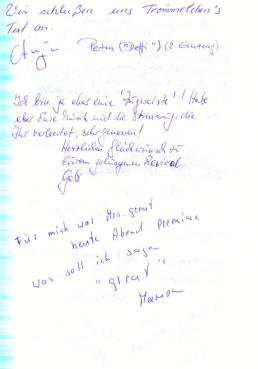 Wir schließen uns Trommelchen's
Text an.
Peter ("Deffi") (2. Eintrag)
Ich bin ja eher eine "Zugereiste"! Habe
aber Eure Musik und die Stimmung, die
Ihr verbreitet, sehr genossen!
Herzlichen Glückwunsch zu
Eurem gelungenen Revival
Gabi
Für mich war Mrs. great
heute Abend Premiere
was soll ich sagen
"great"
Marion